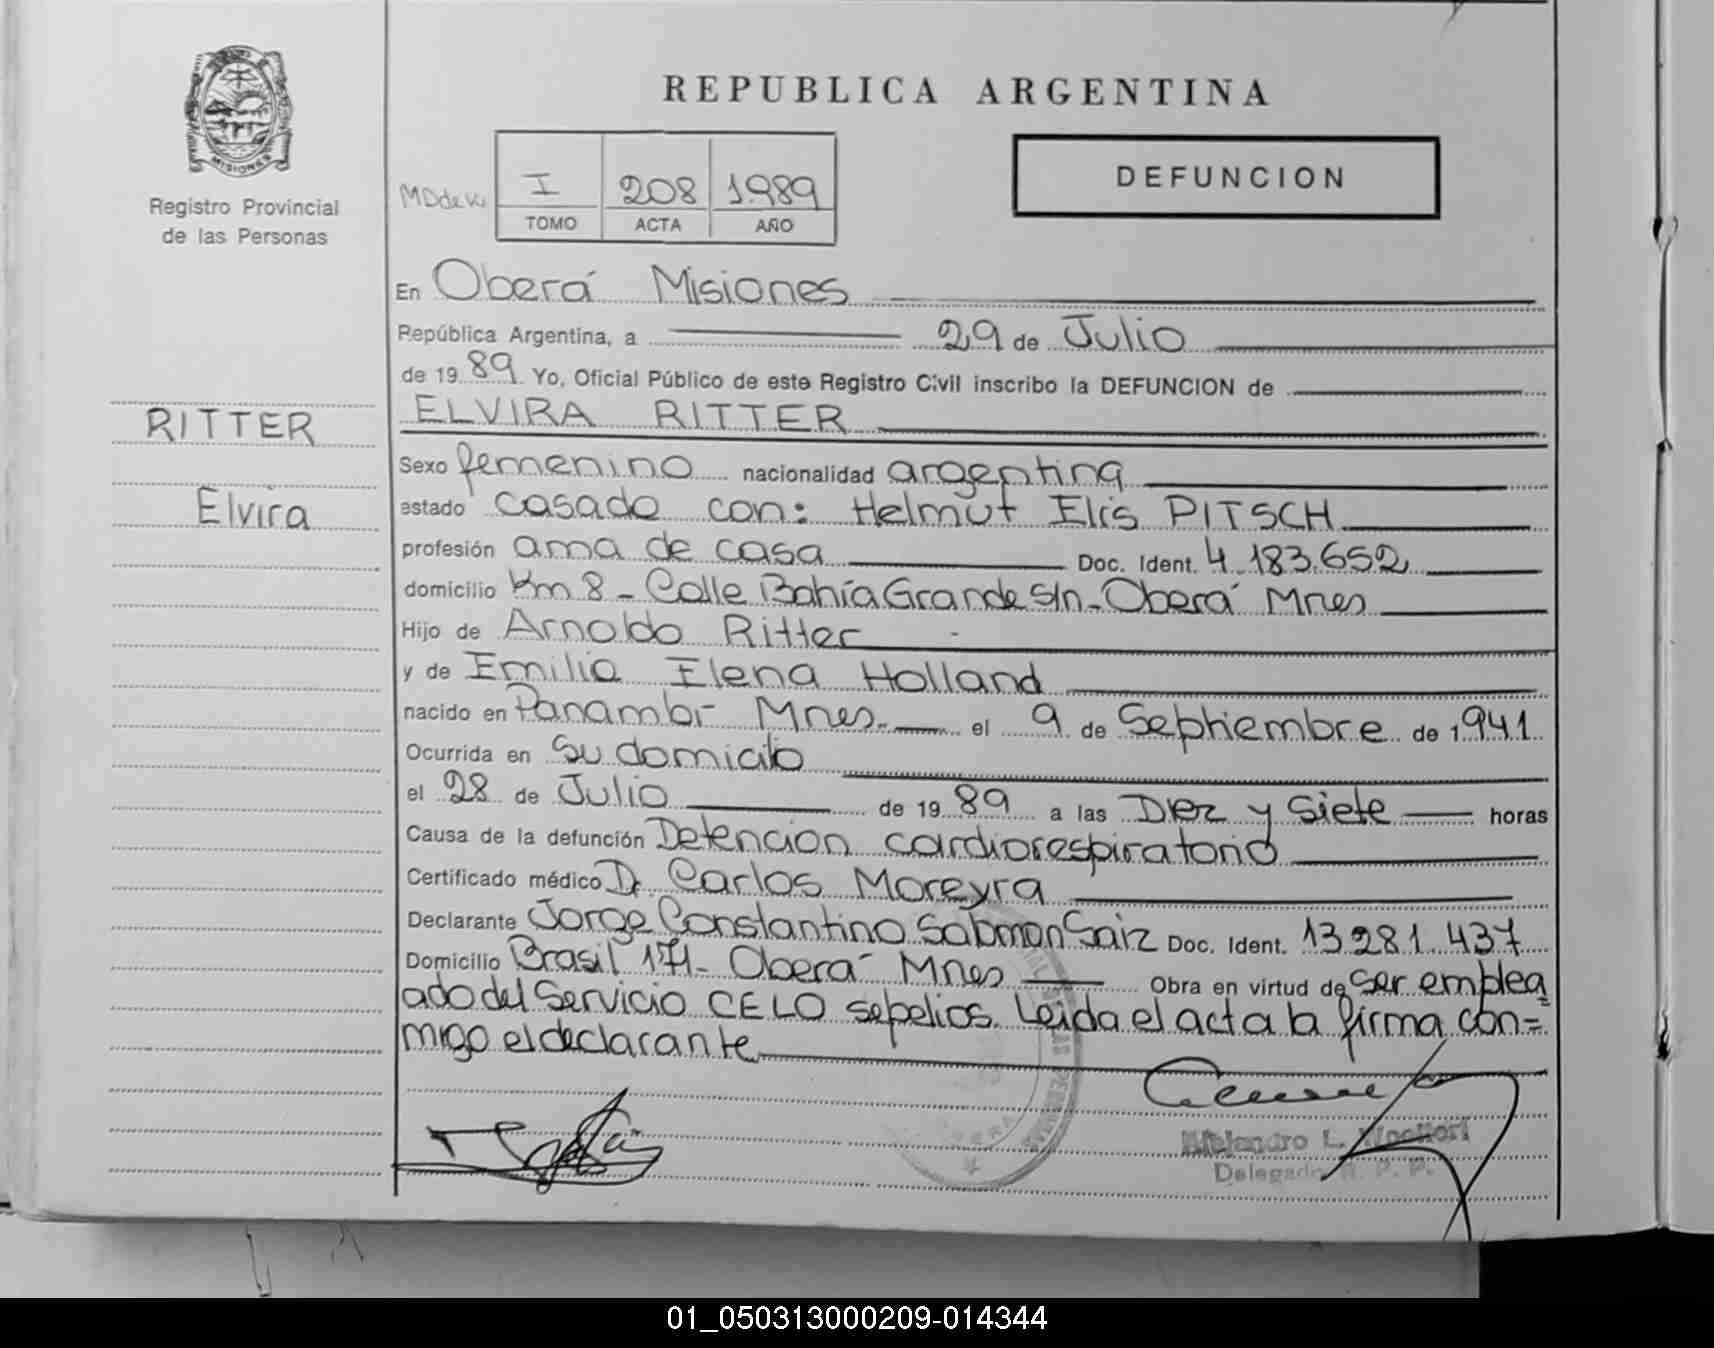 MISIONES
Registro Provincial
de las Personas
REPUBLICA ARGENTINA
I 208 1.989
TOMO ACTA AÑO
DEFUNCION
En Oberá Misiones
República Argentina, a 29 de Julio
de 19 89 Yo, Oficial Público de este Registro Civil inscribo la DEFUNCION de
RITTER
Elvira
ELVIRA RITTER
Sexo femenino nacionalidad argentina
estado casada con: Helmut Elis PITSCH
profesión ama de casa Doc. Ident. 4.183.652
domicilio Km 8 - Calle Bahía Grande S/n - Oberá Mnes
Hijo de Arnoldo Ritter
y de Emilia Elena Holland
nacido en Panambi Mnes. el 9 de Septiembre de 1.941.
Ocurrida en Su domicilio
el 28 de Julio de 19 89 a las Diez y Siete horas
Causa de la defunción Detencion cardiorespiratorio
Certificado médico Dr. Carlos Moreyra
Declarante Jorge Constantino Sabman Saiz Doc. Ident. 13.281.437
Domicilio Brasil 171 - Oberá Mnes Obra en virtud de ser emplea
ado del Servicio CELO sepelios. Leida el acta la firma con=
migo el declarante
Alejandro L.
Delegado R. P. P.
01_050313000209-014344